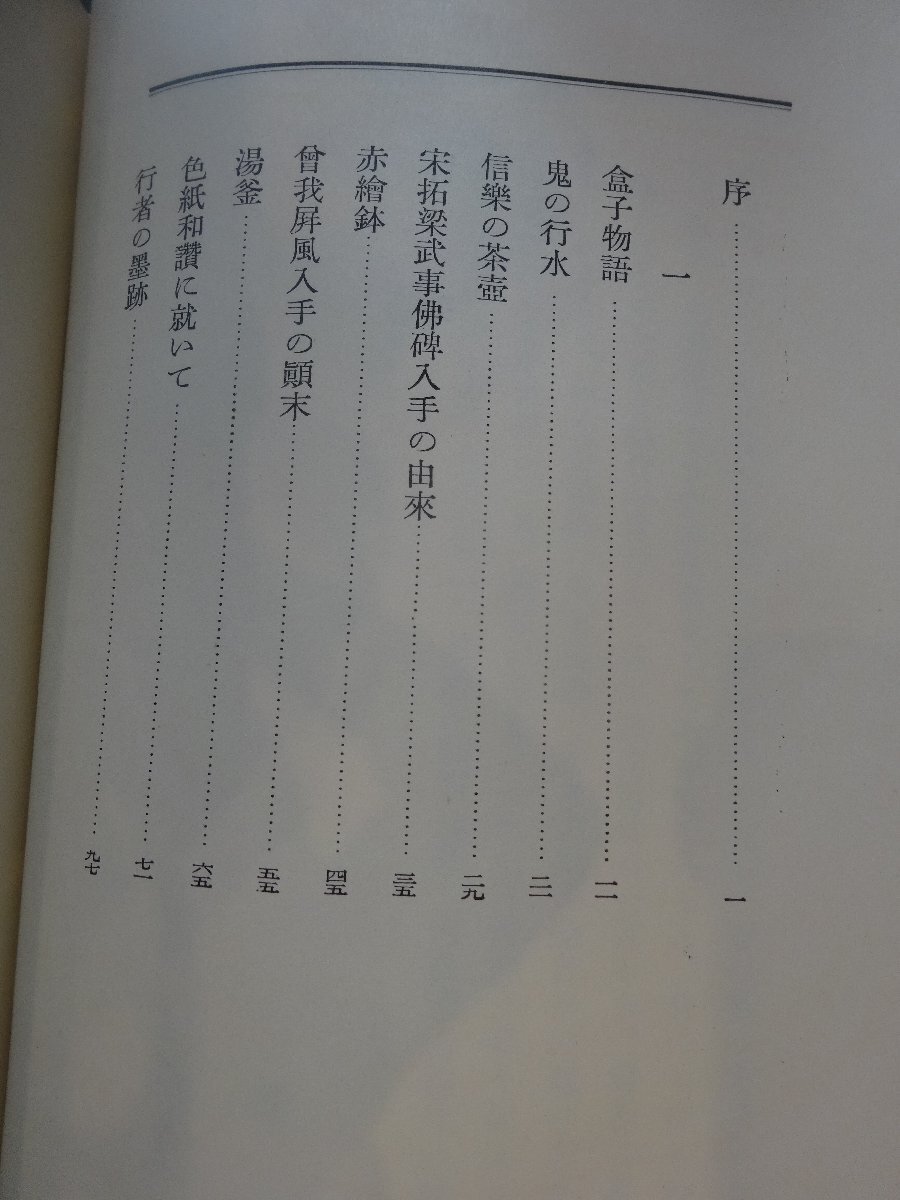 序……一
一
盒子物語……一一
鬼の行水……二一
信樂の茶壺……二九
宋拓梁武事佛碑入手の由來……三五
赤繪鉢……四五
曾我屛風入手の顚末……五五
湯釜……六五
色紙和讚に就いて……七一
行者の墨跡……九七